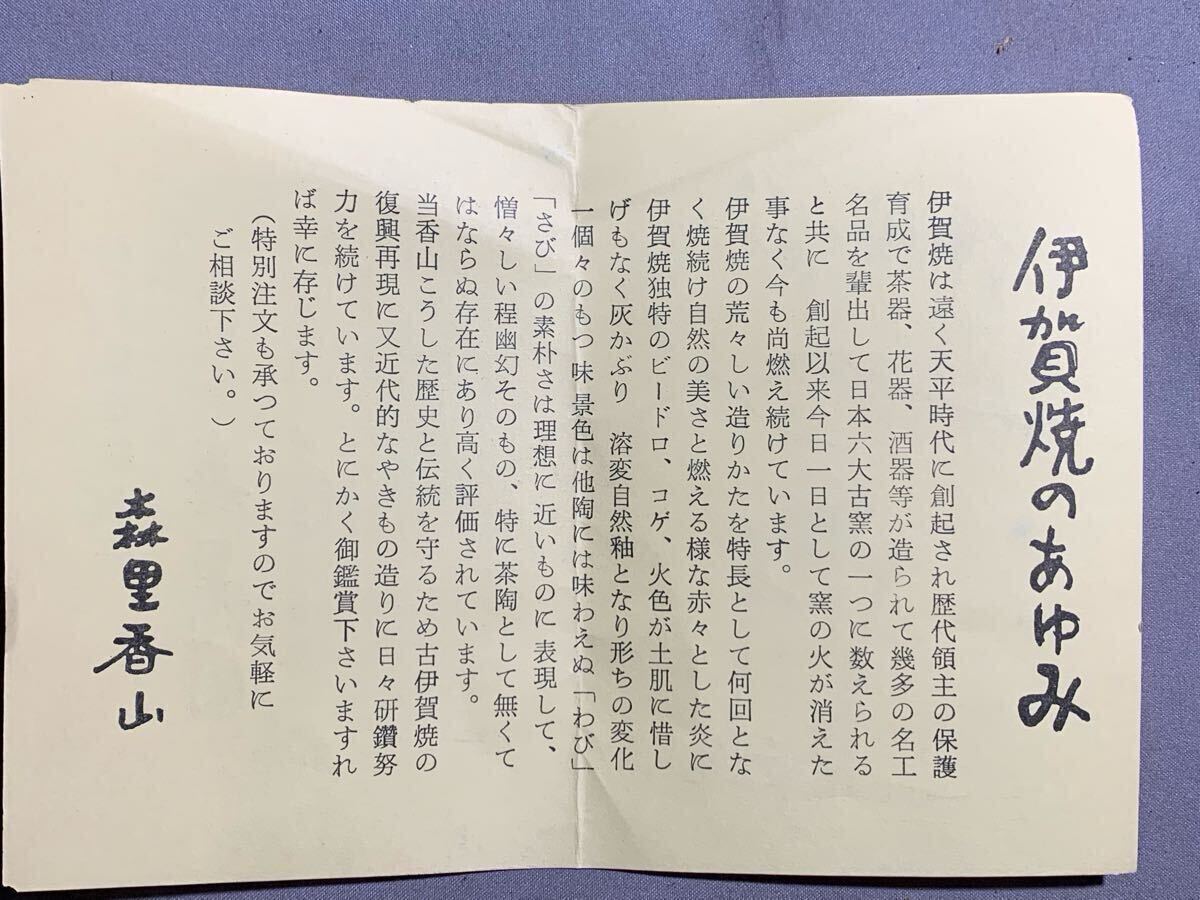 伊賀焼のあゆみ
伊賀焼は遠く天平時代に創起され歴代領主の保護
育成で茶器、花器、酒器等が造られて幾多の名工
名品を輩出して日本六大古窯の一つに数えられる
と共に 創起以来今日一日として窯の火が消えた
事なく今も尚燃え続けています。
伊賀焼の荒々しい造りかたを特長として何回とな
く焼続け自然の美さと燃える様な赤々とした炎に
伊賀焼独特のビードロ、コゲ、火色が土肌に惜し
げもなく灰かぶり 溶変自然釉となり形ちの変化
一個々のもつ味景色は他陶には味わえぬ「わび」
「さび」の素朴さは理想に近いものに表現して、
憎々しい程幽幻そのもの、特に茶陶として無くて
はならぬ存在にあり高く評価されています。
当香山こうした歴史と伝統を守るため古伊賀焼の
復興再現に又近代的なやきもの造りに日々研鑽努
力を続けています。とにかく御鑑賞下さいますれ
ば幸に存じます。
(特別注文も承つておりますのでお気軽に
ご相談下さい。)
森里香山